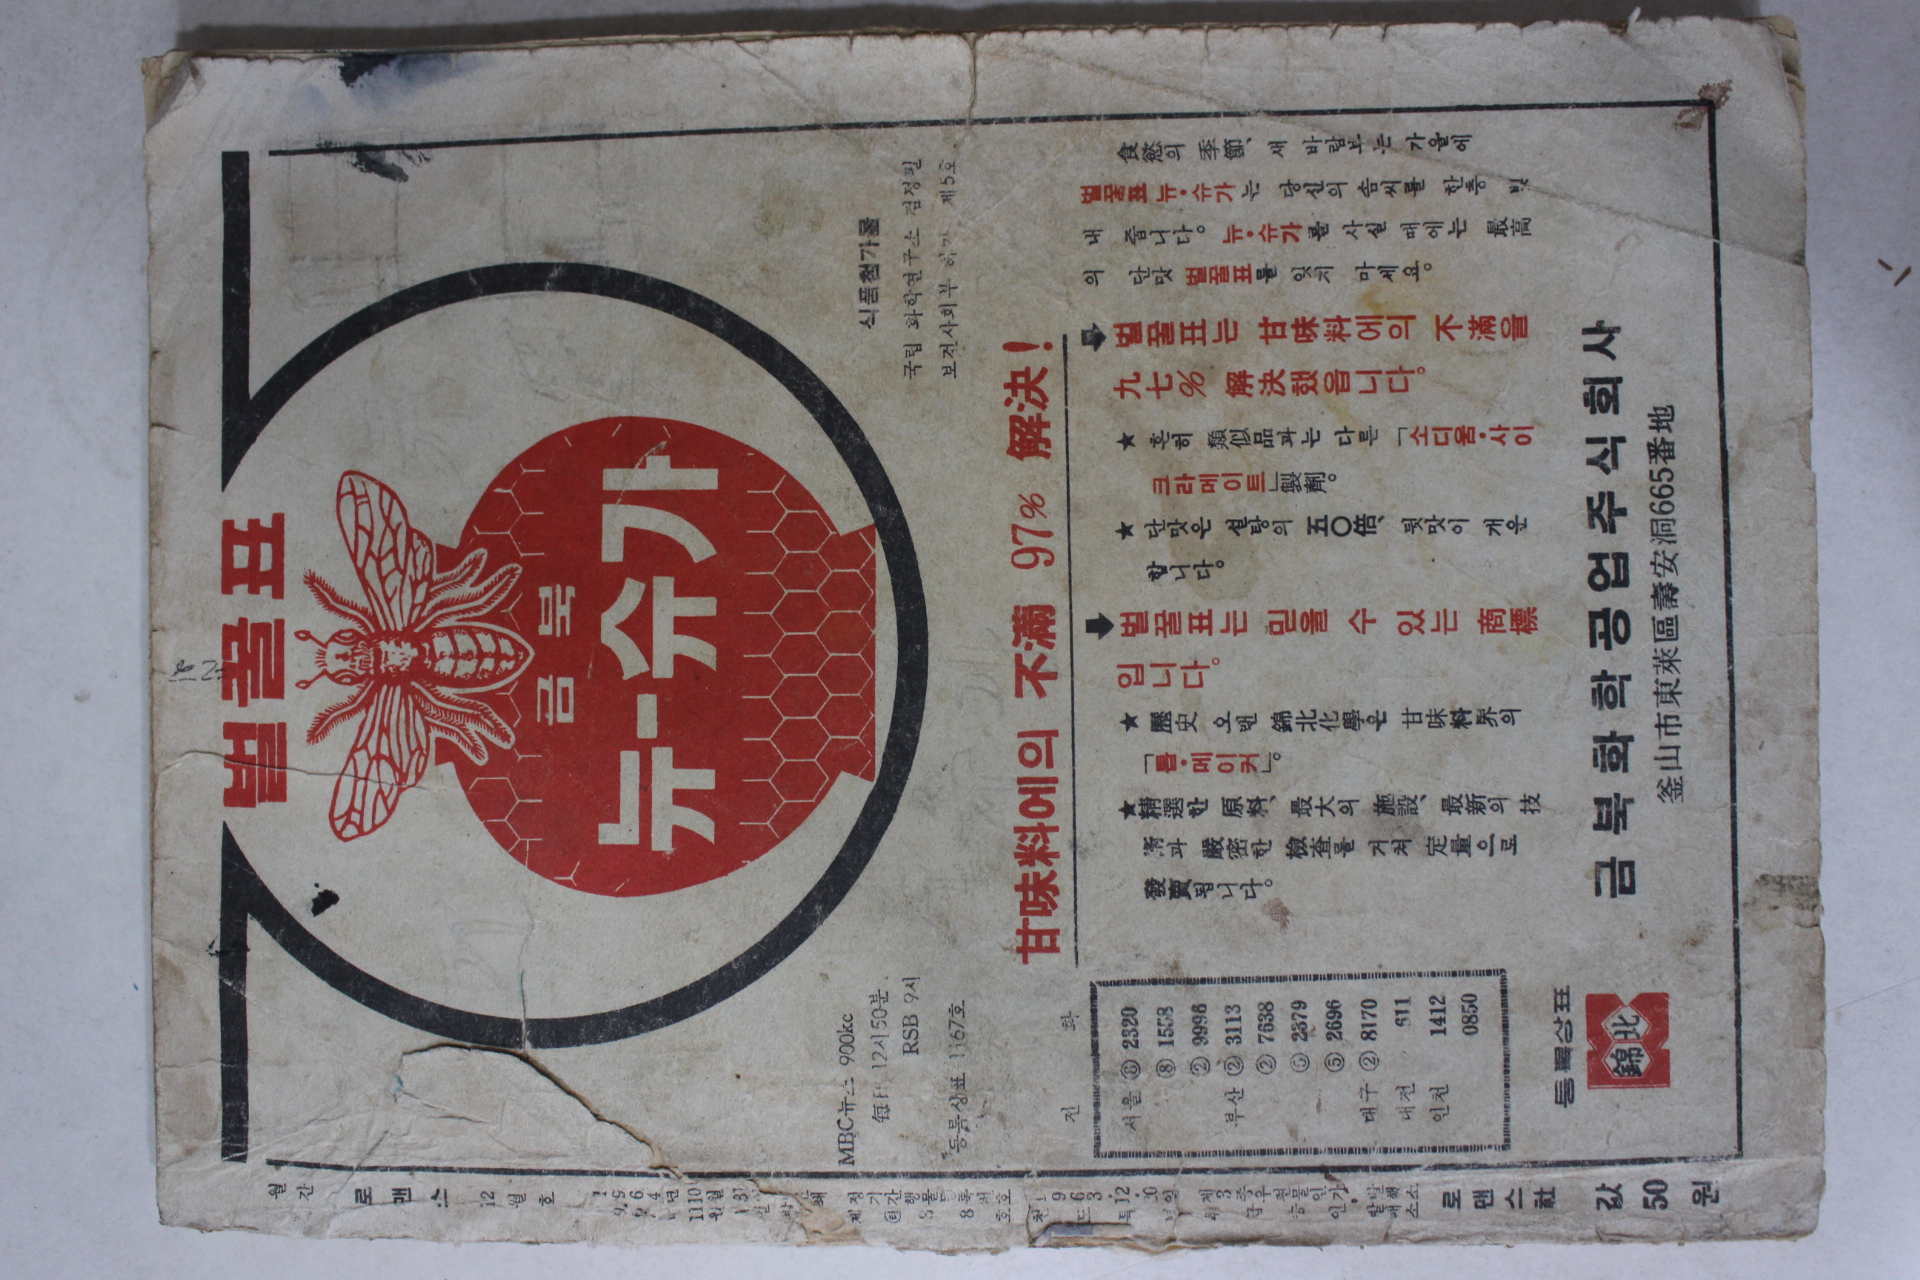 벌꿀표
금북
뉴-슈가
식품첨가물
국립 화학연구소 검정필
보건사회부 허가 제5호
MBC뉴스 900kc
每日 12시50분
RSB 9시
등록상표 1167호
甘味料에의 不滿 97% 解決!
食慾의 季節、새 바람부는 가을에
벌꿀표 뉴·슈가는 당신의 솜씨를 한층 빛
내 줍니다。뉴·슈가를 사실 때에는 最高
의 단맛 벌꿀표를 잊지 마세요。
벌꿀표는 甘味料에의 不滿을
九七% 解決했읍니다。
★ 흔히 類似品과는 다른 「소디움·사이
크라메이트」製劑。
★ 단맛은 설탕의 五〇倍、뒷맛이 개운
합니다。
벌꿀표는 믿을 수 있는 商標
입니다。
★ 歷史 오랜 錦北化學은 甘味料界의
「톱·메이커」。
★ 精選한 原料、最大의 施設、最新의 技
術과 嚴密한 檢査를 거쳐 定量으로
發賣됩니다。
전 화
서울 ⑧ 2320
⑧ 1558
② 9996
부산 ② 3113
② 7638
2579
⑤ 2696
대구 ② 8170
대전 611
인천 1412
0850
등록상표
錦北
금북화학공업주식회사
釜山市東萊區壽安洞665番地
월간
로맨스
12월호
로맨스社
값 50원